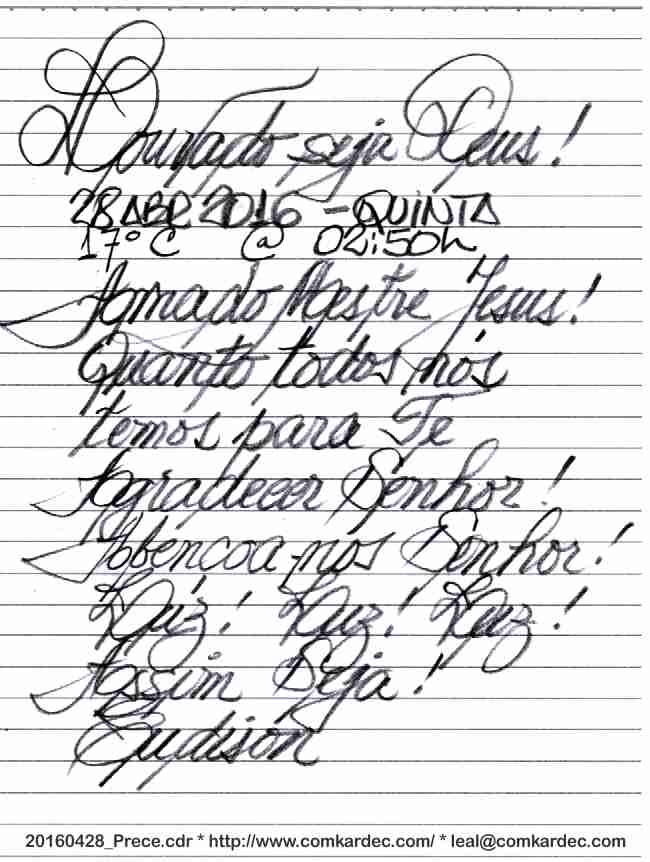 Louvado seja Deus!
28 ABR 2016 - QUINTA
17°C @ 02:50h
Amado Mestre Jesus!
Quanto todos nós
temos para Te
Agradecer Senhor!
Abbencoa-nos Senhor!
Luz! Luz! Luz!
Assim Seja!
Eudison
20160428_Prece.cdr * http://www.comkardec.com/ * leal@comkardec.com